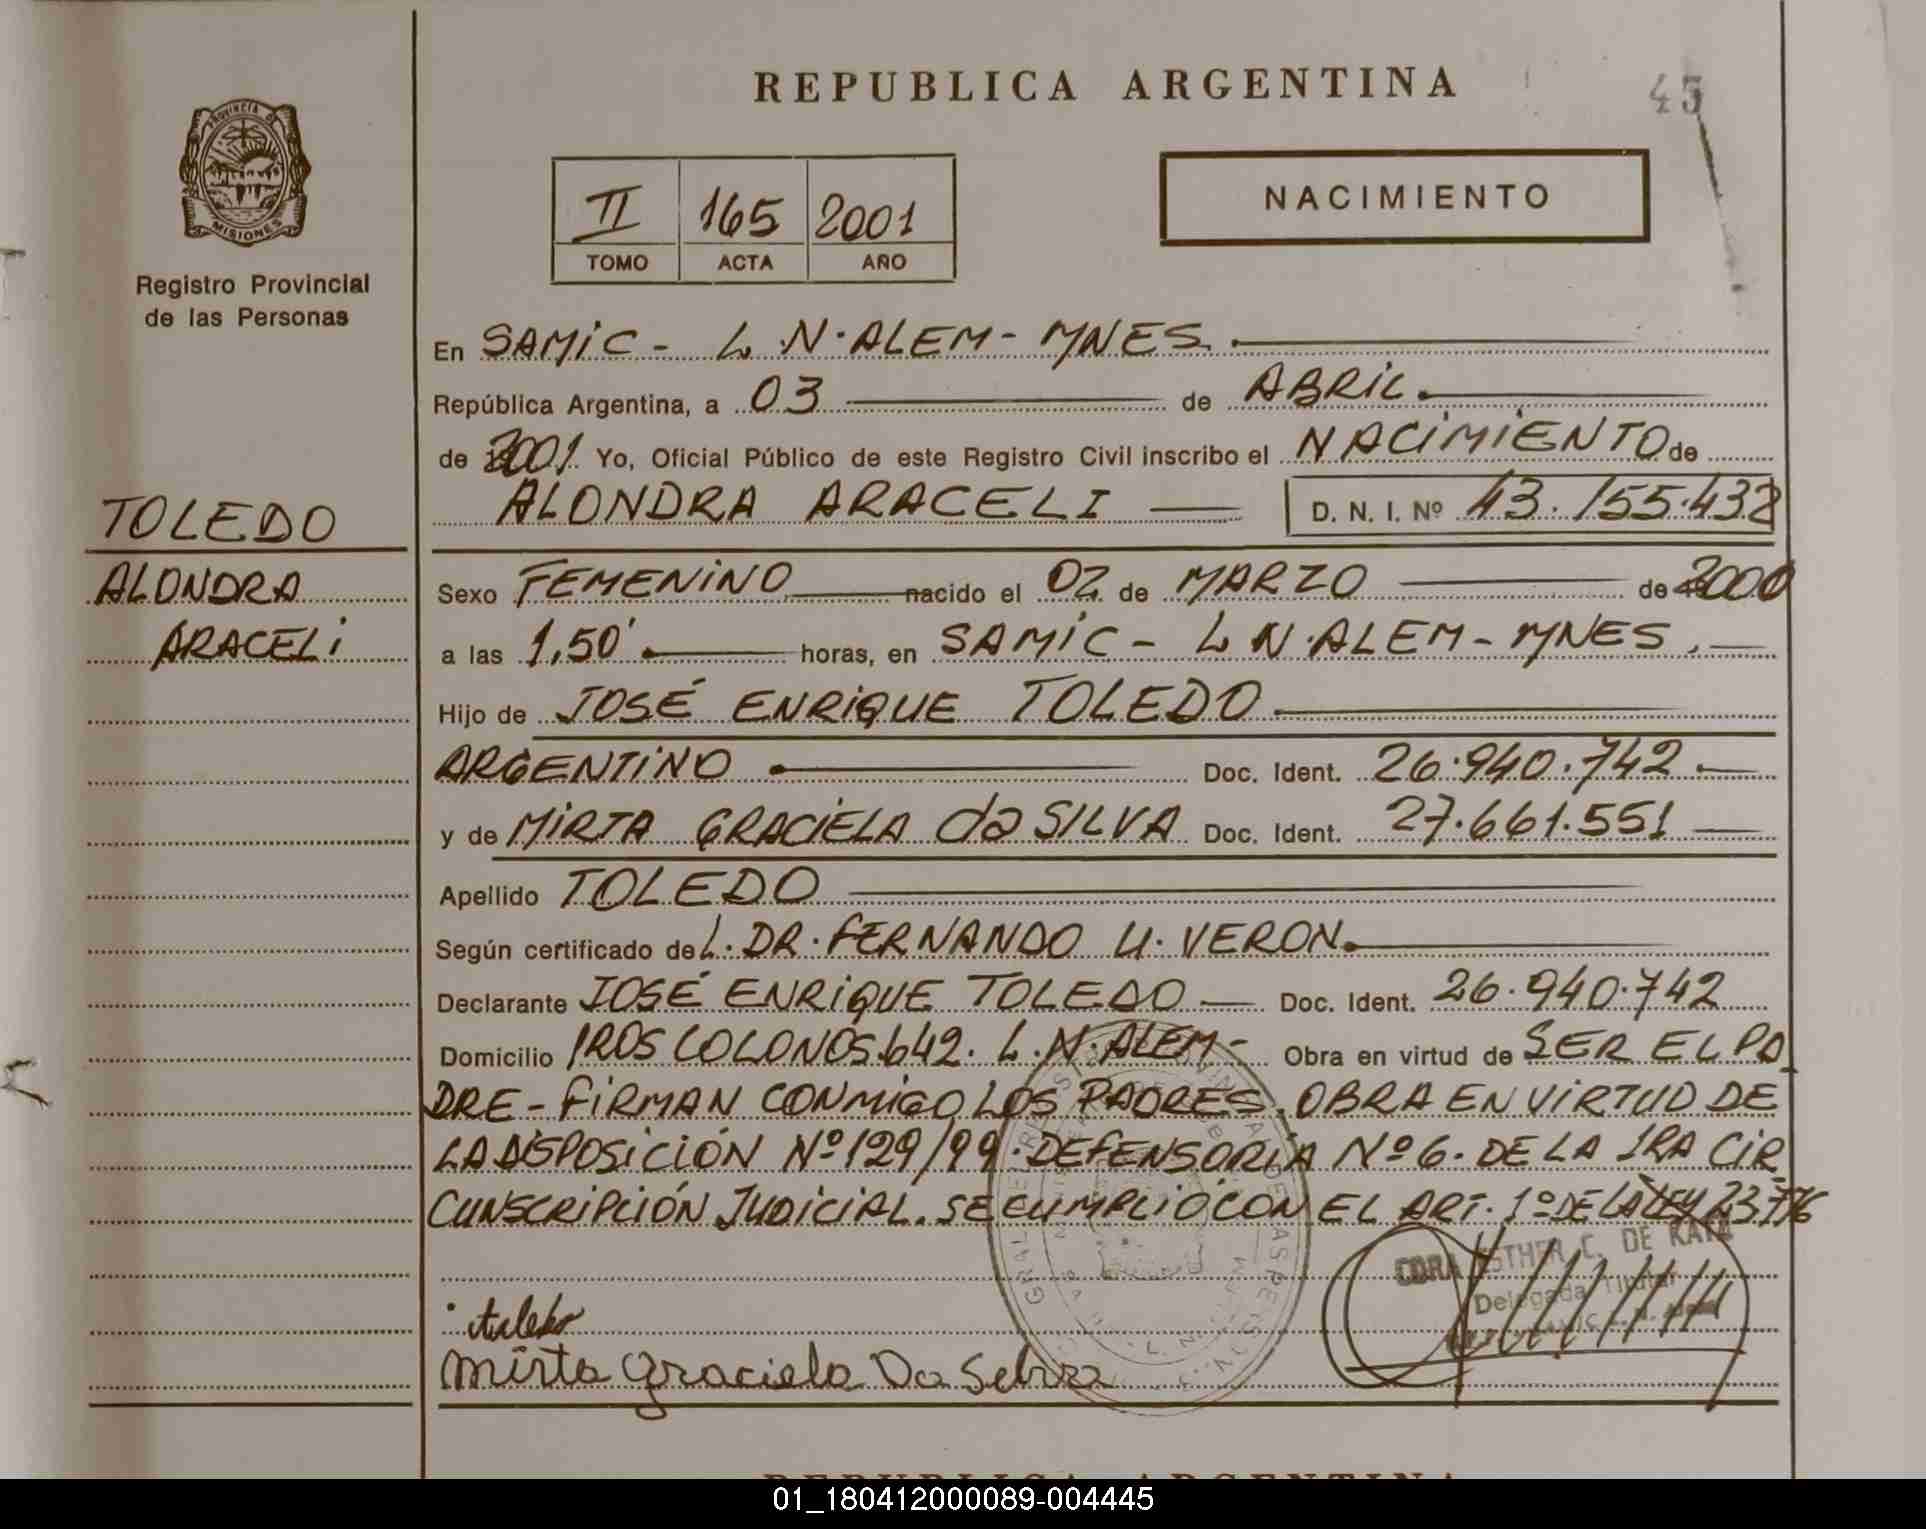 REPUBLICA ARGENTINA
45
PROVINCIA DE
MISIONES
Registro Provincial
de las Personas
II 165 2001
TOMO ACTA AÑO
NACIMIENTO
En SAMIC - L.N.ALEM - MNES
República Argentina, a 03 de ABRIL
de 2001. Yo, Oficial Público de este Registro Civil inscribo el NACIMIENTO de
ALONDRA ARACELI D. N. I. Nº 43.155.432
TOLEDO
ALONDRA
ARACELI
Sexo FEMENINO nacido el 02 de MARZO de 2000
a las 1,50' horas, en SAMIC - L N.ALEM - MNES.
Hijo de JOSÉ ENRIQUE TOLEDO
ARGENTINO Doc. Ident. 26.940.742
y de MIRTA GRACIELA da SILVA Doc. Ident. 27.661.551
Apellido TOLEDO
Según certificado del. DR. FERNANDO U. VERON
Declarante JOSÉ ENRIQUE TOLEDO Doc. Ident. 26.940.742
Domicilio 1ROS COLONOS 642. L.N.ALEM - Obra en virtud de SER EL PA
DRE - FIRMAN CONMIGO LOS PADRES. OBRA EN VIRTUD DE
LA DISPOSICIÓN Nº 129/99. DEFENSORÍA Nº 6. DE LA 1RA CIR
CUNSCRIPCIÓN JUDICIAL. SE CUMPLIÓ CON EL ART. 1º DE LA LEY 23.776
ESTHER C. DE
Delegada Titular
Mirta Graciela Da Selvza
REPUBLICA ARGENTINA
01_180412000089-004445